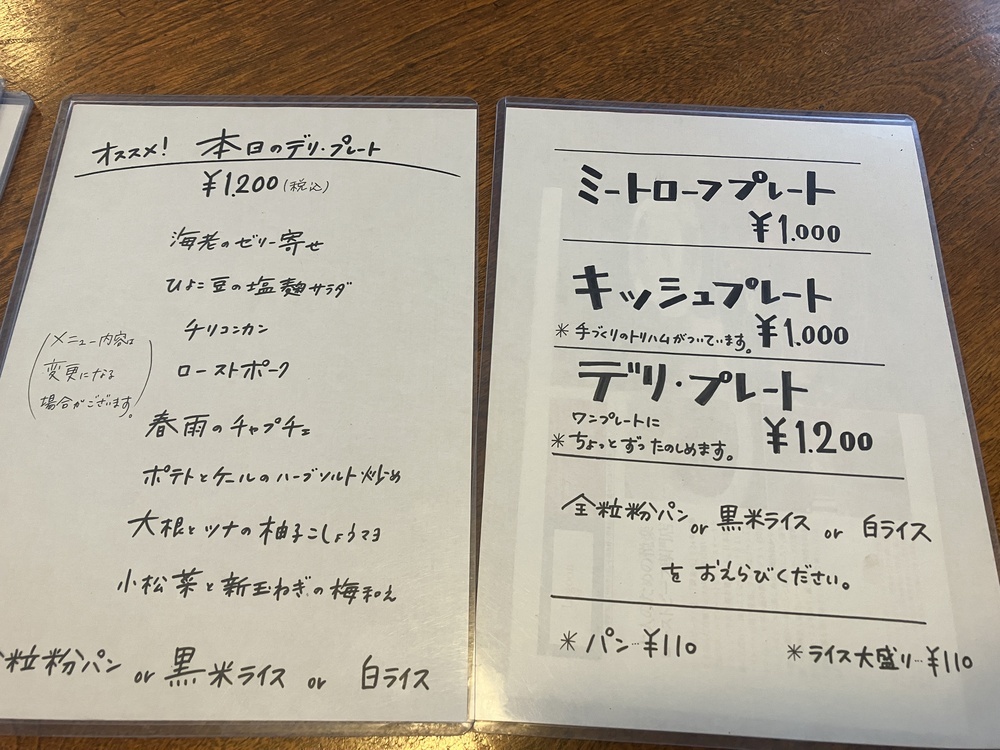 オススメ! 本日のデリ・プレート
¥1.200(税込)
海老のゼリー寄せ
ひよこ豆の塩麹サラダ
チリコンカン
ローストポーク
春雨のチャプチェ
ポテトとケールのハーブソルト炒め
大根とツナの柚子こしょうマヨ
小松菜と新玉ねぎの梅和え
(メニュー内容は
変更になる
場合がございます。)
粒粉パン or 黒米ライス or 白ライス
ミートローフプレート
¥1.000
キッシュプレート
*手づくりのトリハムがついています。 ¥1.000
デリ・プレート
ワンプレートに
*ちょっとずつたのしめます。 ¥1.200
全粒粉パン or 黒米ライス or 白ライス
を おえらびください。
*パン…¥110 *ライス大盛り…¥110